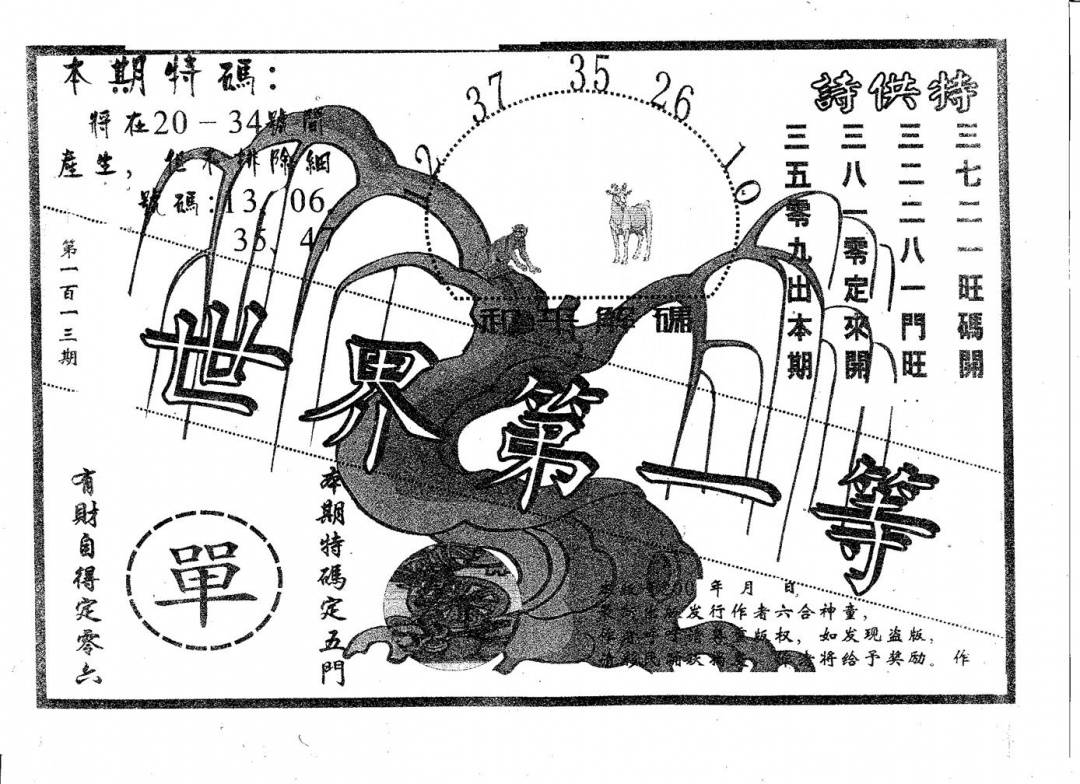 本期特碼：
將在20－34號間
產生，但不排除細
號碼:13、06、
35、47
第一百一十三期
12
37
35
26
10
特供詩
三七二一旺碼開
三二二八一門旺
三八一零定來開
三五零九出本期
解碼
世界第一等
有財自得定零六
單
本期特碼定五門
年 月 日
发行作者六合神童，
版权，如发现盗版，
将给予奖励。作